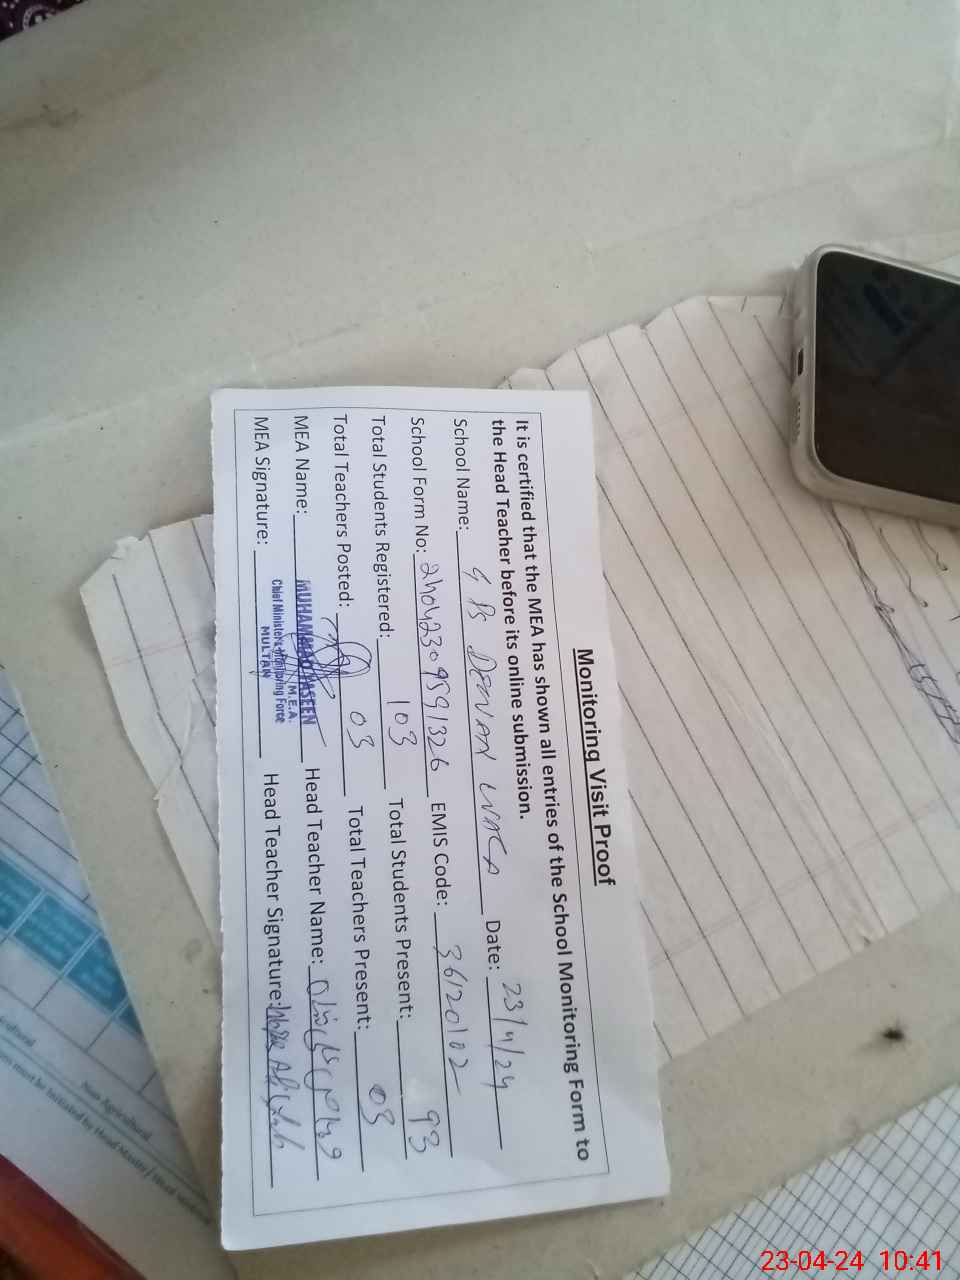 Monitoring Visit Proof
It is certified that the MEA has shown all entries of the School Monitoring Form to
the Head Teacher before its online submission.
School Name: GPS DEWAN WALA Date: 23/4/24
School Form No: 24042309591326 EMIS Code: 36120102
Total Students Registered: 103 Total Students Present: 93
Total Teachers Posted: 03 Total Teachers Present: 03
MEA Name: MUHAMMAD YASEEN Head Teacher Name:
M.E.A.
MEA Signature: Chief Minister's Monitoring Force Head Teacher Signature:
MULTAN
Non Agricultural
must be Initiated by Head Master/Head
23-04-24 10:41